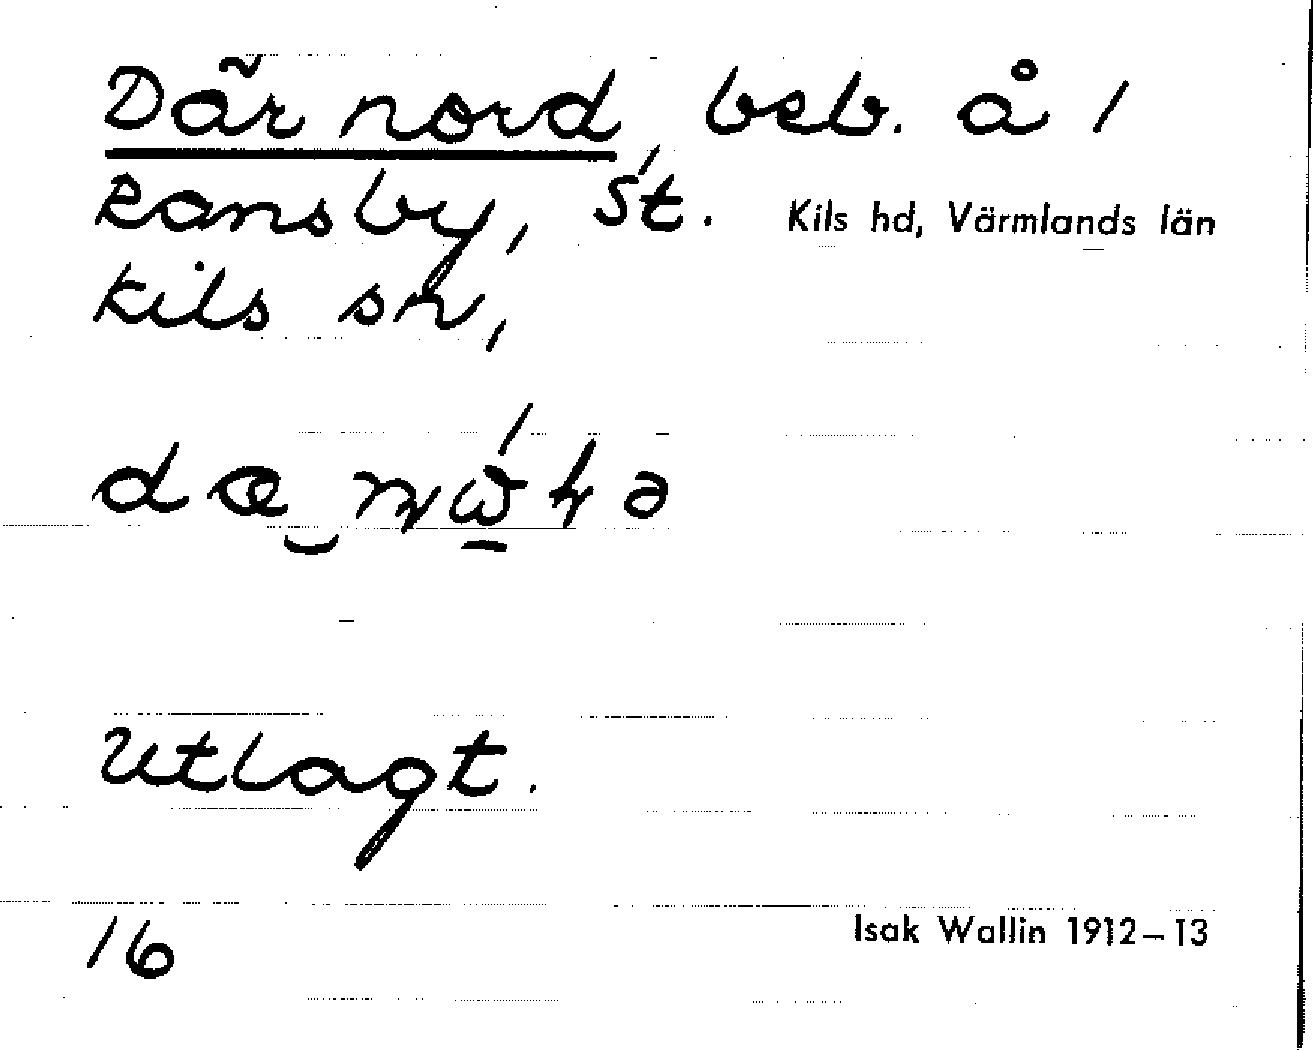 Där nord, beb. å 1
Ransby, St. Kils hd, Värmlands län
Kils sn,
Utlagt.
16
Isak Wallin 1912–13